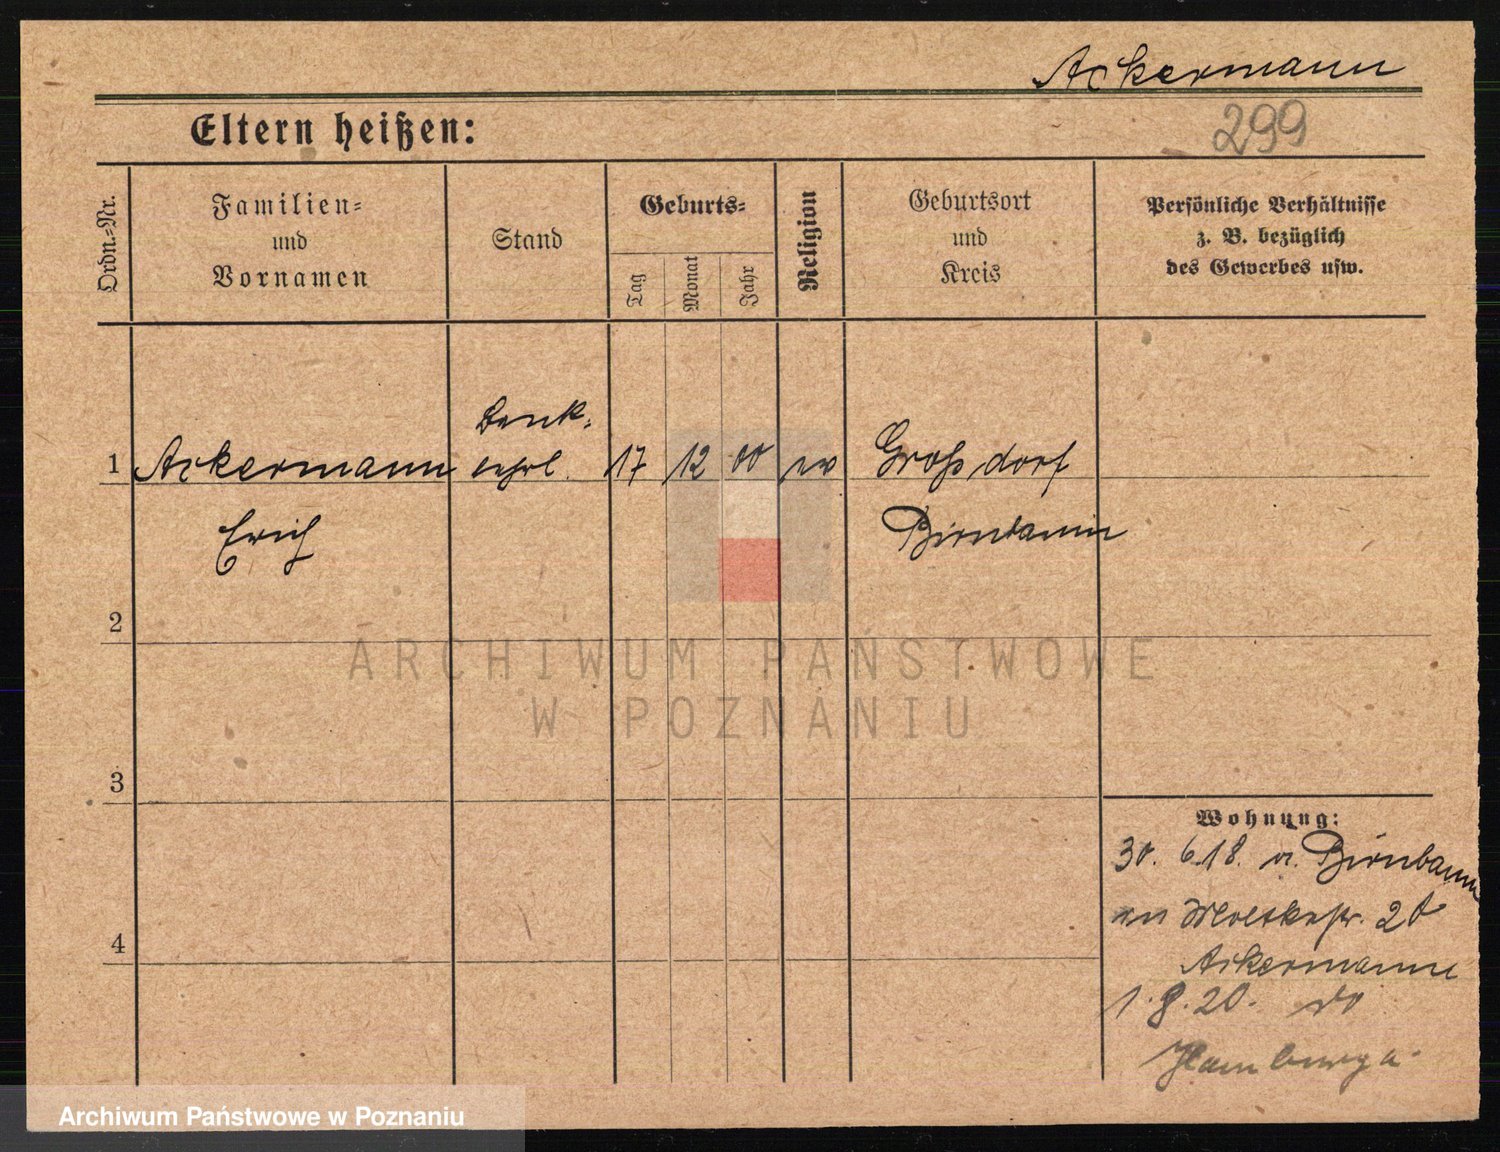 Ackermann
299
Eltern heißen:
Ordn.=Nr.
Familien=
und
Vornamen
Stand
Geburts=
Tag
Monat
Jahr
Religion
Geburtsort
und
Kreis
Persönliche Verhältnisse
z. B. bezüglich
des Gewerbes usw.
Bank=
1 Ackermann lehrl. 17 12 00 ev Großdorf
Erich Birnbaum
2
3
4
ARCHIWUM PAŃSTWOWE
W POZNANIU
Wohnung:
30. 6.18. v. Birnbaum
Moltkestr. 20
Ackermann
1.8.20.
Hamburg
Archiwum Państwowe w Poznaniu